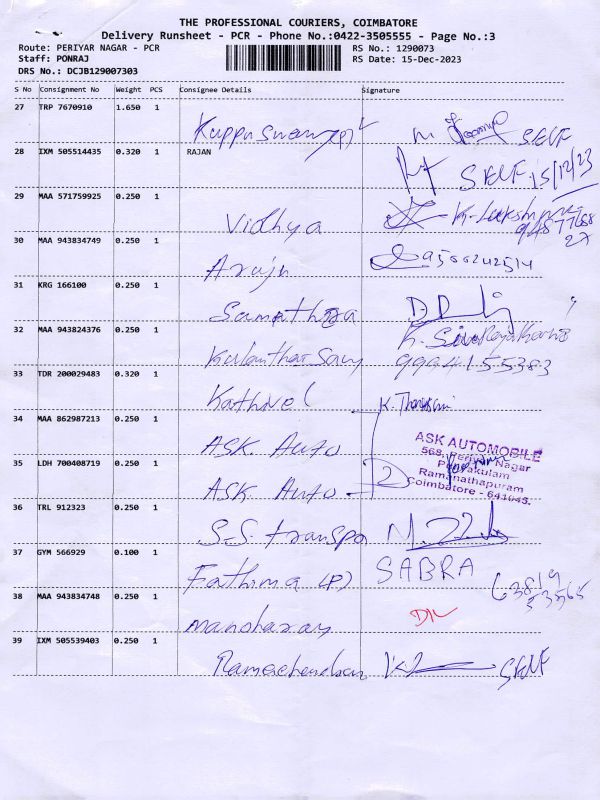 THE PROFESSIONAL COURIERS, COIMBATORE
Delivery Runsheet - PCR - Phone No.:0422-3505555 - Page No.:3
Route: PERIYAR NAGAR - PCR RS No.: 1290073
Staff: PONRAJ RS Date: 15-Dec-2023
DRS No.: DCJB129007303
S No Consignment No Weight PCS Consignee Details Signature
27 TRP 7670910 1.650 1
Kuppuswamy(P) SELF
28 IXM 505514435 0.320 1 RAJAN
SELF 15/12/23
29 MAA 571759925 0.250 1
Vidhya
30 MAA 943834749 0.250 1
Arujn 9500242514
31 KRG 166100 0.250 1
32 MAA 943824376 0.250 1
9994155383
33 TDR 200029483 0.320 1
Kathivel
34 MAA 862987213 0.250 1
ASK. Auto
ASK AUTOMOBILE
568, Periyar Nagar
Ramanathapuram
Coimbatore - 641045.
35 LDH 700408719 0.250 1
ASK. Auto 2
36 TRL 912323 0.250 1
S.S. transpo
37 GYM 566929 0.100 1
Fathima (P) SABRA 63819
53565
38 MAA 943834748 0.250 1
manoharan
39 IXM 505539403 0.250 1
Ramachendran SELF